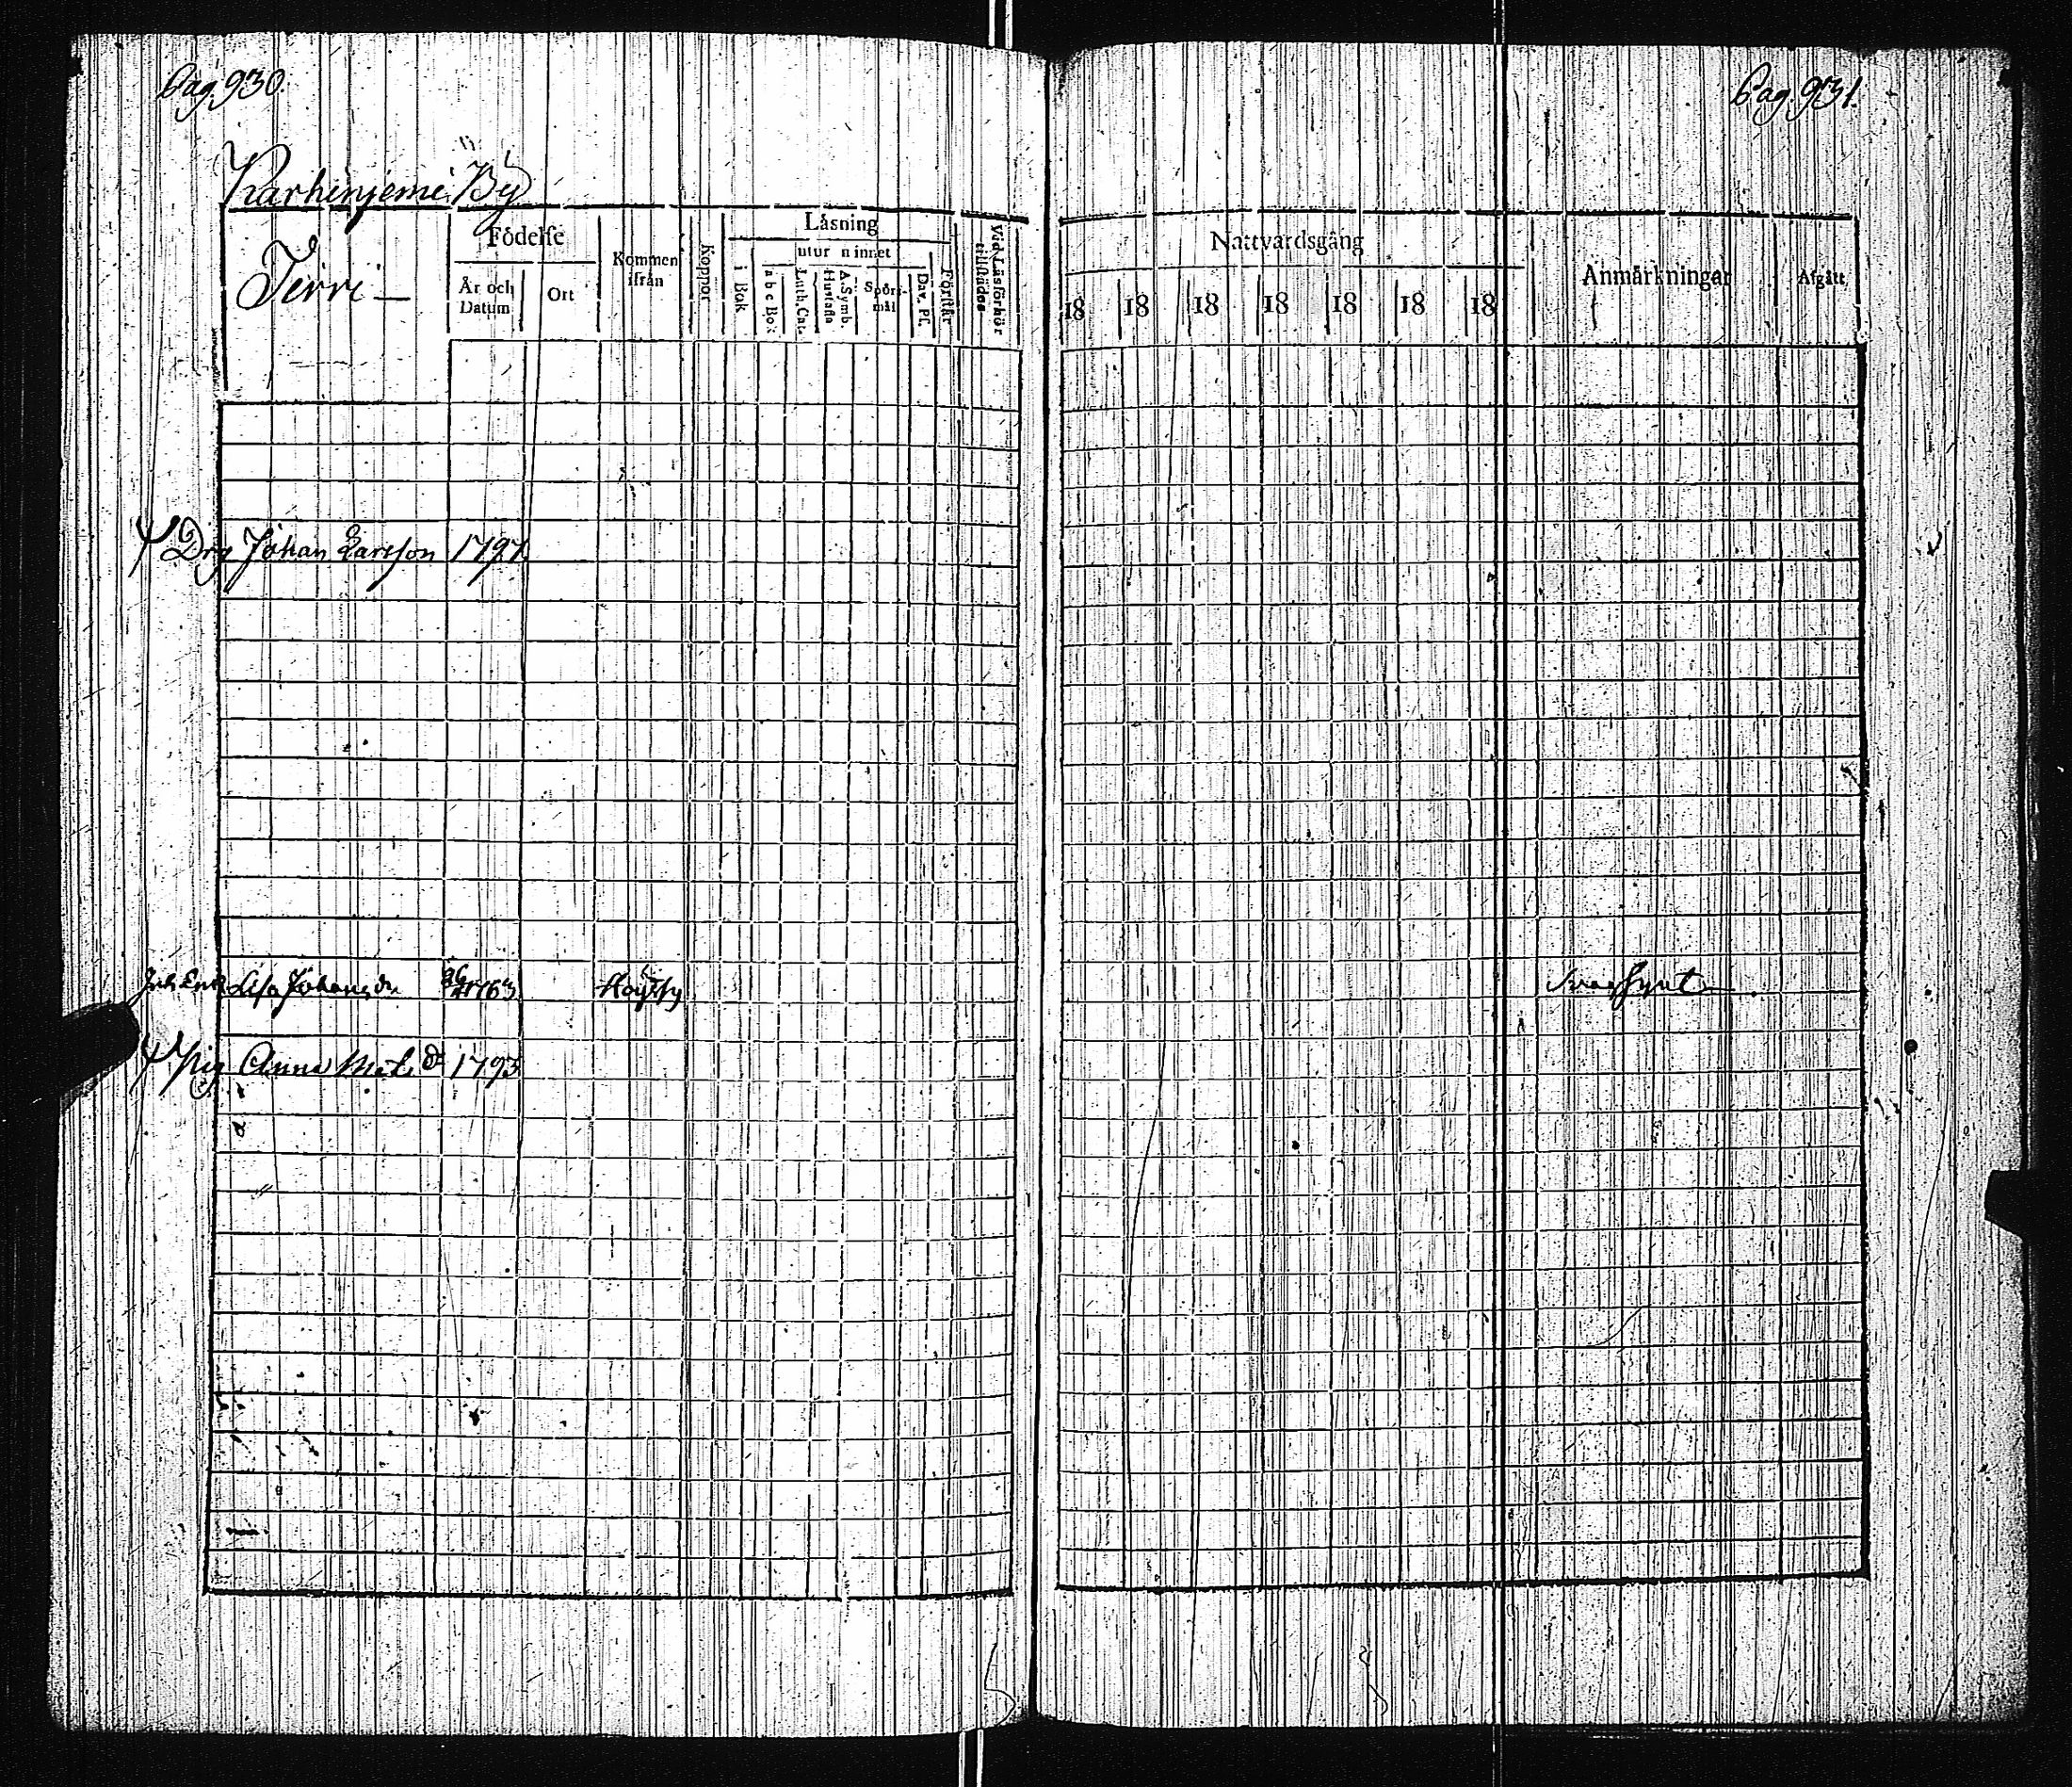 Pag. 930.
Pag. 931.
Karhinjemi By
Jerri
Födelse
År och Datum
Ort
Kommen ifrån
Koppor
Läsning
utur minnet
i Bok
Luth. Cat.
Hustafla
A. Symb.
Spörsmål
Dav. Ps.
Förstår
Vid Läsförhör tillstädes
Nattvardsgång
18 18 18 18 18 18 18
Anmärkningar
Afgått
Drg Johan Larsson 1797
Enk Lisa Johansdr 1763
Svagsynt
Pig Anna Mats dr 1793